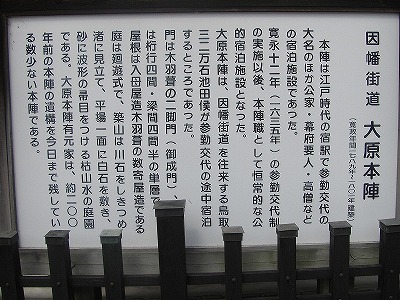 因幡街道 大原本陣
(寛政年間一七八九~一八〇一年建築)
本陣は江戸時代の宿駅で参勤交代の
大名のほか公家・幕府要人・高僧など
の宿泊施設であった。
寛永十二年(一六三五年)の参勤交代制
の実施以後、本陣職として恒常的な公
的宿泊施設となった。
大原本陣は、因幡街道を往来する鳥取
三二万石池田侯が参勤交代の途中宿泊
するところであった。
門は木羽葺の二脚門(御成門)、
は桁行四間・梁間四間半の単層で
屋根は入母屋造木羽葺の数寄屋造である
庭は廻遊式で、築山は川石をしきつめ
渚に見立て、平場一面に白石を敷き、
砂に波形の帚目をつける枯山水の庭園
である。大原本陣有元家は、約二〇〇
年前の本陣の遺構を今日まで残してい
る数少ない本陣である。